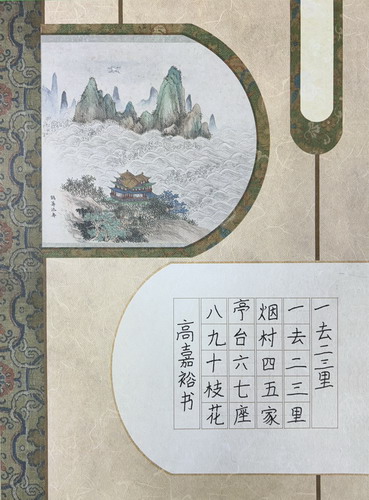 一去二三里
一去二三里
烟村四五家
亭台六七座
八九十枝花
高嘉裕书